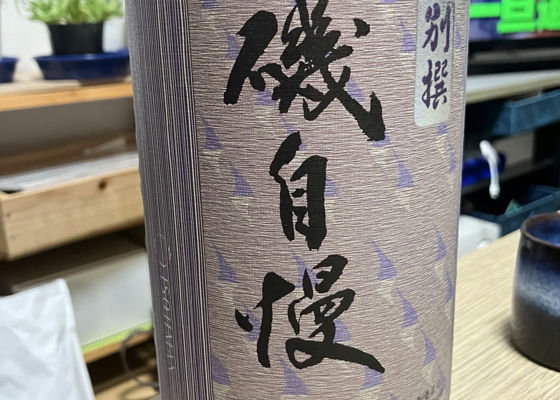 磯自慢
別撰